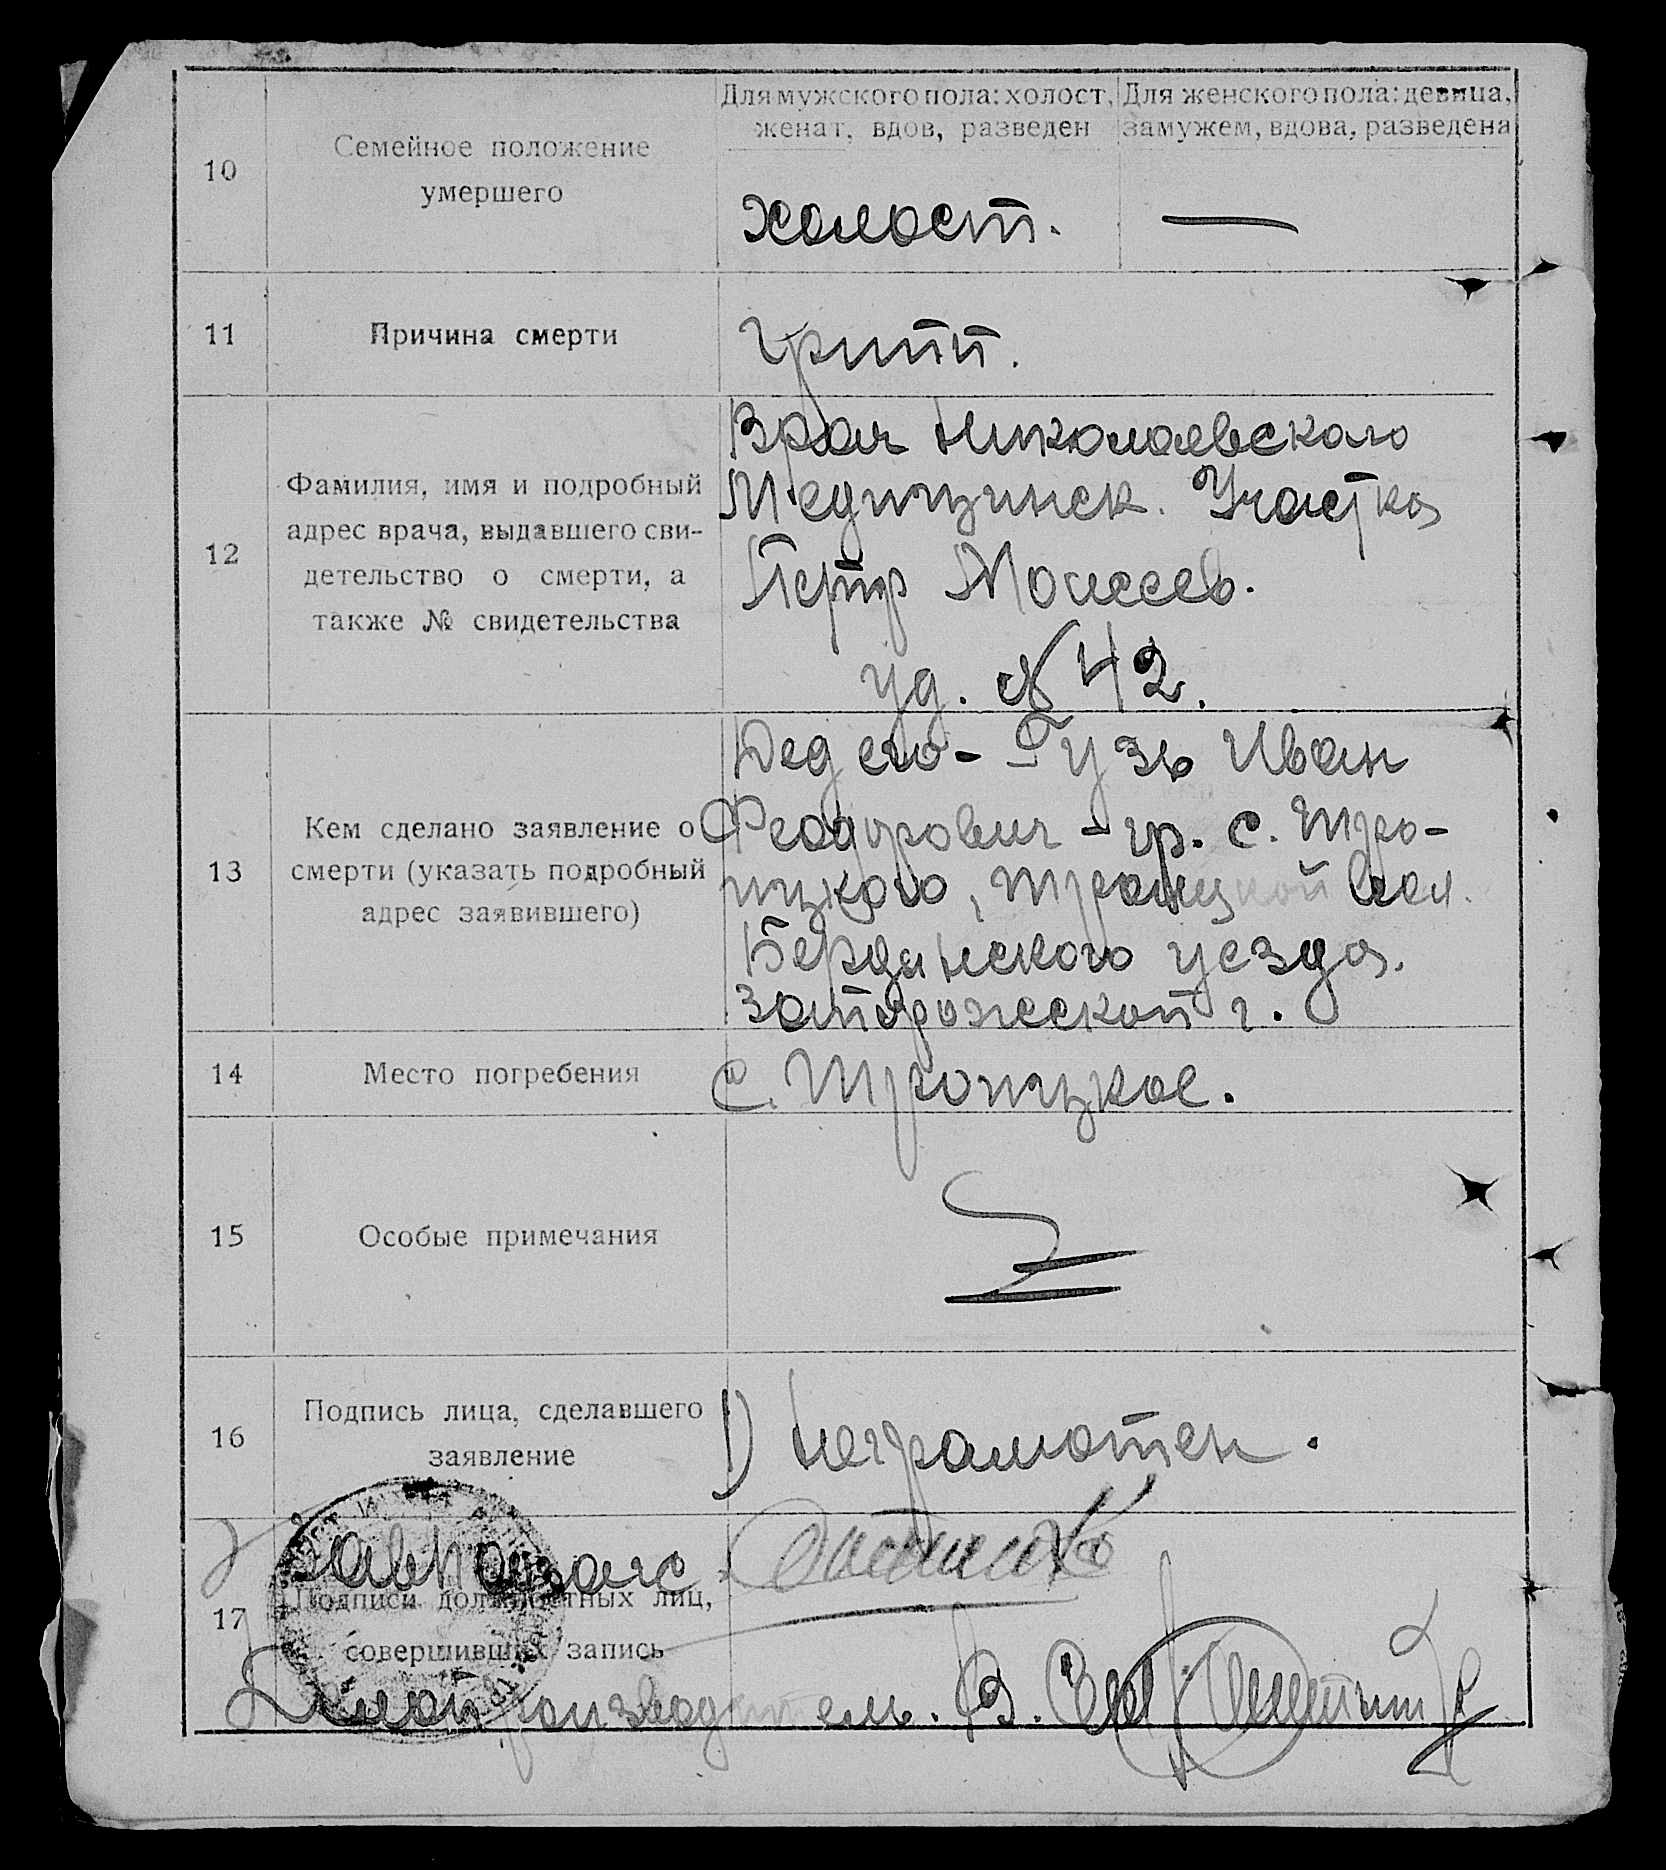 Для мужского пола: холост, женат, вдов, разведен
Для женского пола: девица, замужем, вдова, разведена
10
Семейное положение
умершего
холост.
—
11
Причина смерти
грипп.
12
Фамилия, имя и подробный
адрес врача, выдавшего сви-
детельство о смерти, а
также № свидетельства
Врач Николаевского
Медицинск. Участка
Петр Моисеев.
уд. № 42.
13
Кем сделано заявление о
смерти (указать подробный
адрес заявившего)
Дед его - Гузь Иван
Феодорович - гр. с. Тро-
ицкого, Троицкой вол.
Бердянского уезда.
Запорожской г.
14
Место погребения
с. Троицкое.
15
Особые примечания
16
Подпись лица, сделавшего
заявление
1) Неграмотен.
17
Подписи должностных лиц,
совершивших запись
Завподзагс
Делопроизводитель. В.